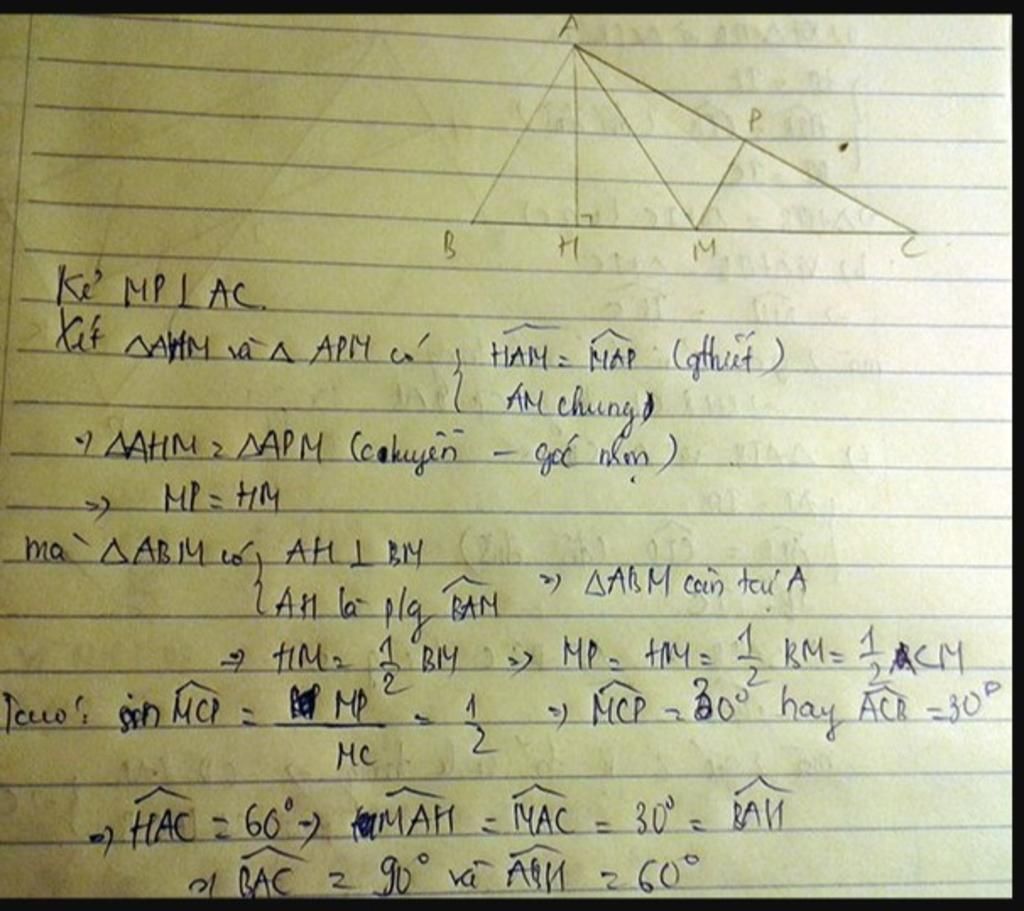 A
P
B H M C
Kẻ MP ⊥ AC.
Xét ΔAHM và Δ APM có { HAM = MAP (gthiết)
AM chung
=> ΔAHM = ΔAPM (c.huyền - góc nhọn)
=> MP = HM
mà ΔABM có { AH ⊥ BM
AH là p/g BAM => ΔABM cân tại A
=> HM = 1/2 BM => MP = HM = 1/2 BM = 1/2 CM
Ta có: sin MCP = MP/MC = 1/2 => MCP = 30° hay ACB = 30°
=> HAC = 60° => MAH = MAC = 30° = BAH
=> BAC = 90° và ABH = 60°